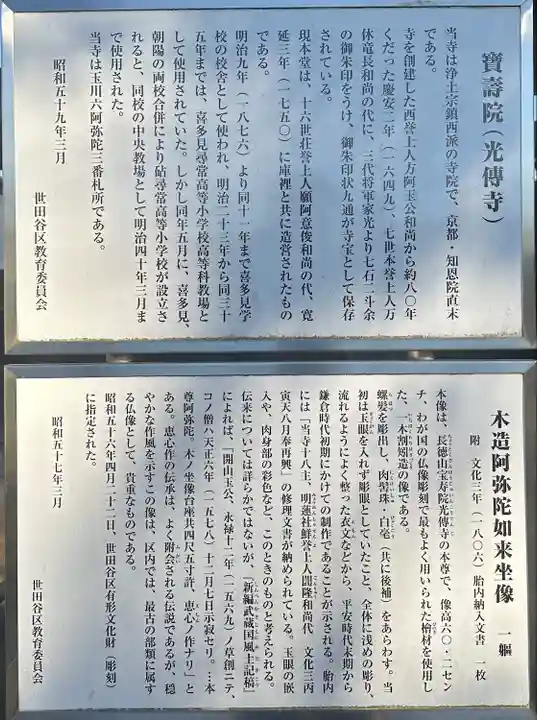 寶壽院（光傳寺）
当寺は浄土宗鎮西派の寺院で、京都・知恩院直末
である。
寺を創建した西誉上人方阿玉公和尚から約八〇年
くだった慶安二年（一六四九）、七世本誉上人万
休竜長和尚の代に、三代将軍家光より七石二斗余
の御朱印をうけ、御朱印状九通が寺宝として保存
されている。
現本堂は、十六世荘誉上人願阿意俊和尚の代、寛
延三年（一七五〇）に庫裡と共に造営されたもの
である。
明治九年（一八七六）より同十一年まで喜多見学
校の校舎として使われ、明治二十三年から同三十
五年までは、喜多見尋常高等小学校高等科教場と
して使用されていた。しかし同年五月に、喜多見、
朝陽の両校合併により砧尋常高等小学校が設立さ
れると、同校の中央教場として明治四十年三月ま
で使用された。
当寺は玉川六阿弥陀三番札所である。
昭和五十九年三月
世田谷区教育委員会
木造阿弥陀如来坐像 一軀
附 文化三年（一八〇六）胎内納入文書 一枚
本像は、長徳山宝寿院光傳寺の本尊で、像高六〇・二セン
チ、わが国の仏像彫刻で最もよく用いられた檜材を使用し
た、一木割矧造の像である。
螺髪を彫出し、肉髻珠・白毫（共に後補）をあらわす。当
初は玉眼を入れず彫眼としていたこと、全体に浅めの彫り、
流れるようによく整った衣文などから、平安時代末期から
鎌倉時代初期にかけての制作であることが示される。胎内
には「当寺十八主、明蓮社鮮誉上人聞隆和尚代 文化三丙
寅天八月奉再興」の修理文書が納められている。玉眼の嵌
入や、肉身部の彩色など、このときのものと考えられる。
伝来については詳らかではないが、『新編武蔵国風土記稿』
によれば、「開山玉公、永禄十二年（一五六九）ノ草創ニテ、
コノ僧ハ天正六年（一五七八）十二月七日示寂セリ。…本
尊阿弥陀。木ノ坐像台座共四尺五寸許、恵心ノ作ナリ」と
ある。恵心作の伝承は、よく附会される伝説であるが、穏
やかな作風を示すこの像は、区内では、最古の部類に属す
る仏像として、貴重なものである。
昭和五十六年四月二十二日、世田谷区有形文化財（彫刻）
に指定された。
昭和五十七年三月
世田谷区教育委員会